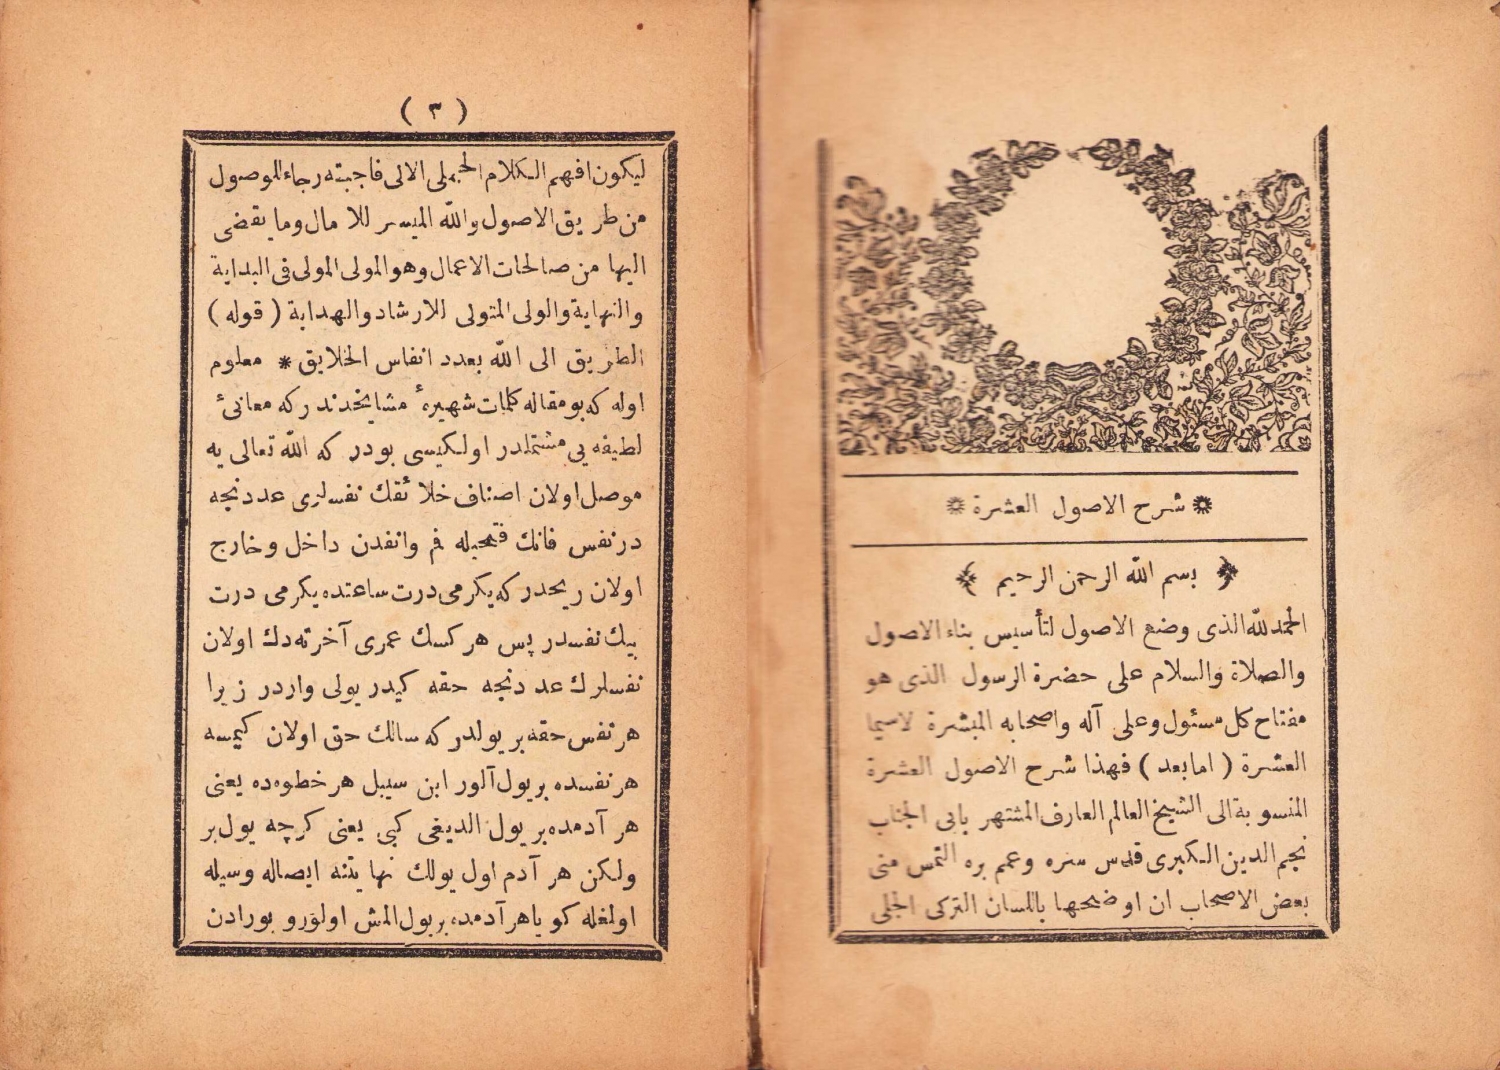 شرح الاصول العشرة
بسم الله الرحمن الرحيم
الحمد لله الذى وضع الاصول لتأسيس بناء الاصول
والصلاة والسلام على حضرة الرسول الذى هو
مفتاح كل مسئول وعلى آله واصحابه المبشرة لاسيما
العشرة ( امابعد ) فهذا شرح الاصول العشرة
المنسوبة الى الشيخ العالم العارف المشتهر بابى الجناب
نجم الدين الكبرى قدس سره وعمم بره التمس منى
بعض الاصحاب ان اوضحها باللسان التركى الجلى
( ٣ )
ليكون افهم الكلام الجملى الالى فاجبته رجاء للوصول
من طريق الاصول والله الميسر للا مال وما يقضى
اليها من صالحات الاعمال وهو المولى المولى فى البداية
والنهاية والولى المتولى للارشاد والهداية ( قوله )
الطريق الى الله بعدد انفاس الخلايق * معلوم
اوله كه بو مقاله كلمات شهيرهٔ مشايخدندر كه معانئ
لطيفه يى مشتملدر اولكيسى بودر كه الله تعالى يه
موصل اولان اصناف خلائقك نفسلرى عددنجه
در نفس فانك فتحيله فم وانفدن داخل وخارج
اولان ريحدر كه يكرمى درت ساعتده يكرمى درت
بيك نفسدر پس هر كسك عمرى آخرته دك اولان
نفسلرك عددنجه حقه كيدر يولى واردر زيرا
هر نفس حقه بر يولدر كه سالك حق اولان كيمسه
هر نفسده بر يول آلور ابن سبيل هر خطوه ده يعنى
هر آدمده بر يول الديغى كبى يعنى كرچه يول بر
ولكن هر آدم اول يولك نهايتنه ايصاله وسيله
اولمغله كويا هر آدمده بر يول المش اولورو بورادن